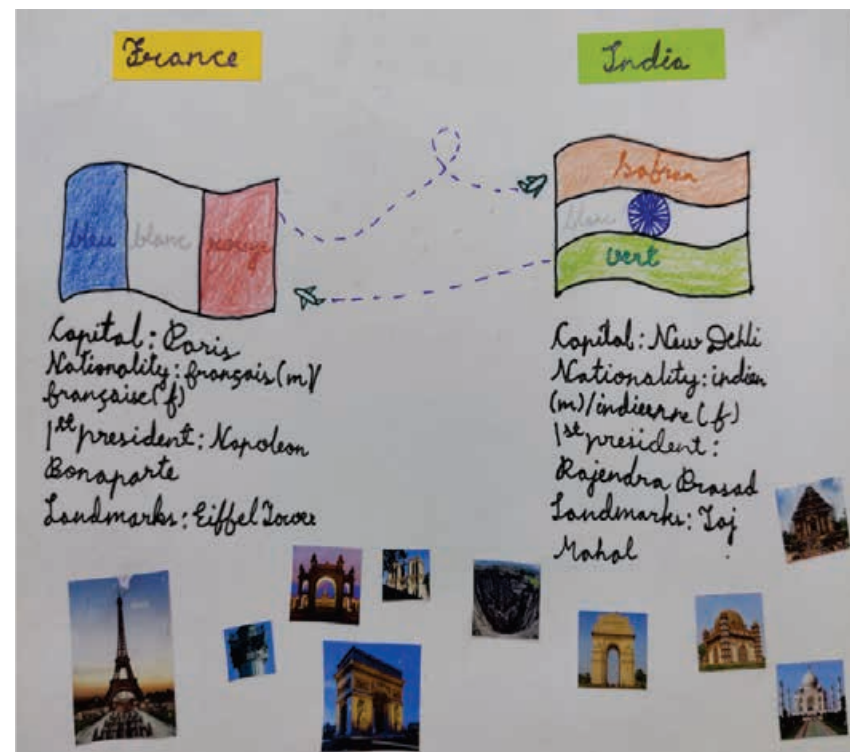 France
India
bleu blanc rouge
Safran
blanc
vert
Capital: Paris
Nationality: français(m)/
française(f)
1st president: Napoleon
Bonaparte
Landmarks: Eiffel Tower
Capital: New Dehli
Nationality: indien
(m)/indienne(f)
1st president:
Rajendra Prasad
Landmarks: Taj
Mahal